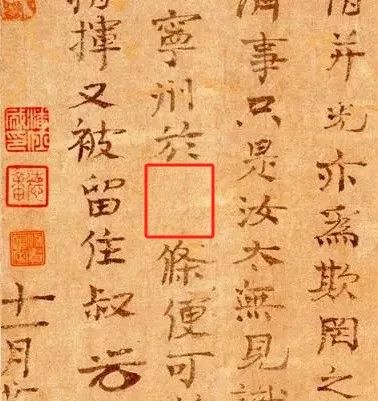 并光亦為欺罔之
濟事只是汝太無見識
寧州於條便可
指揮又被留住叔
十一月